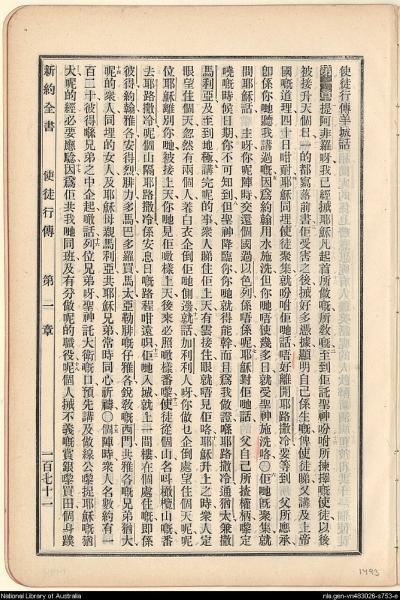 使徒行傳羊城話
提阿非羅呀我已經㨢耶穌凡起首所做嘅所教嘅至到佢託聖神吩咐所揀擇嘅使徒以後
被接升天個日一的都寫落前書佢受害之後㨢好多憑據顯明自己係生嘅俾使徒睇又講及上帝
國嘅道理四十日咁耐耶穌同埋使徒聚集就吩咐佢哋話唔好離開耶路撒冷要等到 父所應承
卽係你哋聽我講過嘅因爲約翰用水施洗但你哋唔使幾多日就受聖神施洗咯○佢哋旣聚集就
問耶穌話 主呀你呢陣時交還個國過以色列係唔係呢耶穌對佢哋話 父自己所揸權柄嚟定
嘵嘅時候日期你不可知到但聖神降臨你你哋就得能幹而且爲我做證喺耶路撒冷通猶太兼撒
馬利亞及至到地極講完呢的事衆人睇住佢上天有雲接住佢眼就唔見佢咯耶穌升上之時衆人定
眼望住個天忽然有兩個人著白衣企倒佢哋側邊就話加利利人呀你做乜企倒處望住個天呢呢
位耶穌離別你哋被接上天你哋見佢噉樣上天後來必照噉樣番嚟使徒從個山名叫橄欖山嘅番
去耶路撒冷呢個山隔耶路撒冷係安息日嘅路程咁遠佢哋入城就上一間樓在個處住嘅卽係
彼得約翰雅各安得烈腓力多馬巴多羅買馬太亞勒腓嘅仔雅各銳敎嘅西門共雅各嘅兄弟猶大
呢的衆人同埋的女人及耶穌母親馬利亞共耶穌兄弟常時同心祈禱○個陣時衆人名數約有一
百二十彼得喺兄弟之中企起嚟話列位兄弟呀聖神託大衛嘅口預先講及做線公嚟捉耶穌嘅猶
大呢的經必要應驗因爲佢共我哋同班及有分做呢的職役呢個人㨢不義嘅賞銀嚟買田個身蹼
新約全書 使徒行傳 第一章 一百七十一
1493
National Library of Australia
nla.gen-vn483026-s753-e